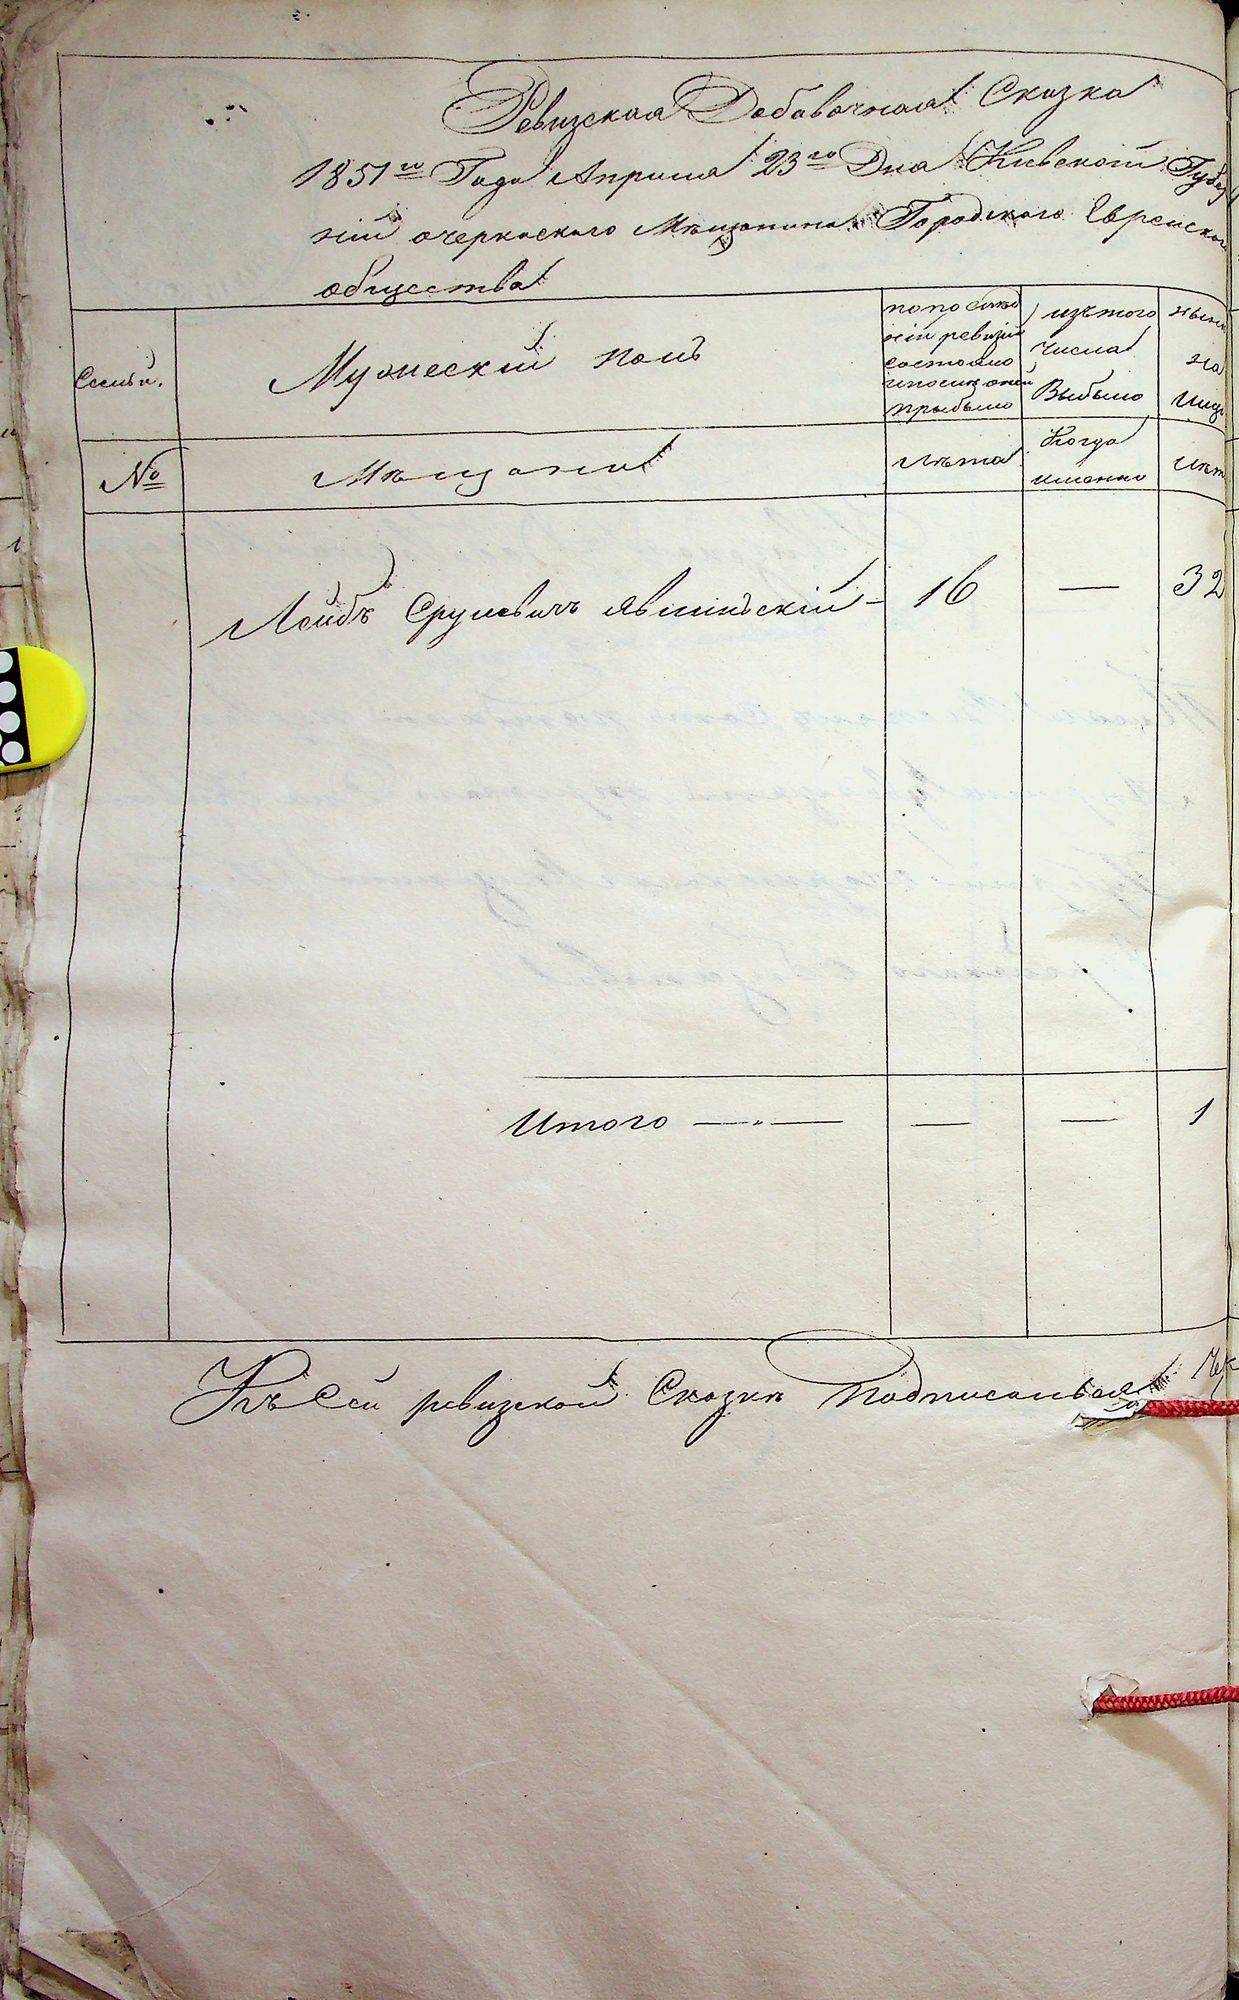 Ревизская Добавочная Сказка
1851го Года Апреля 23го Дня Киевской Губер
нiи о черкаского Мѣщанина Городского Еврейского
общества
Семьи. Мужескiй полъ
по послѣд
нiй ревизiи
состояло
и после оной
прибыло
изъ того
числа
Выбыло
нынѣ
на
лицо
№ Мѣщане Лѣта Когда
именно Лѣт
Лейбъ Срулевичъ Явлинскiй 16 — 32
Итого — — — 1
Къ Сей ревизкой Сказкѣ Подписался